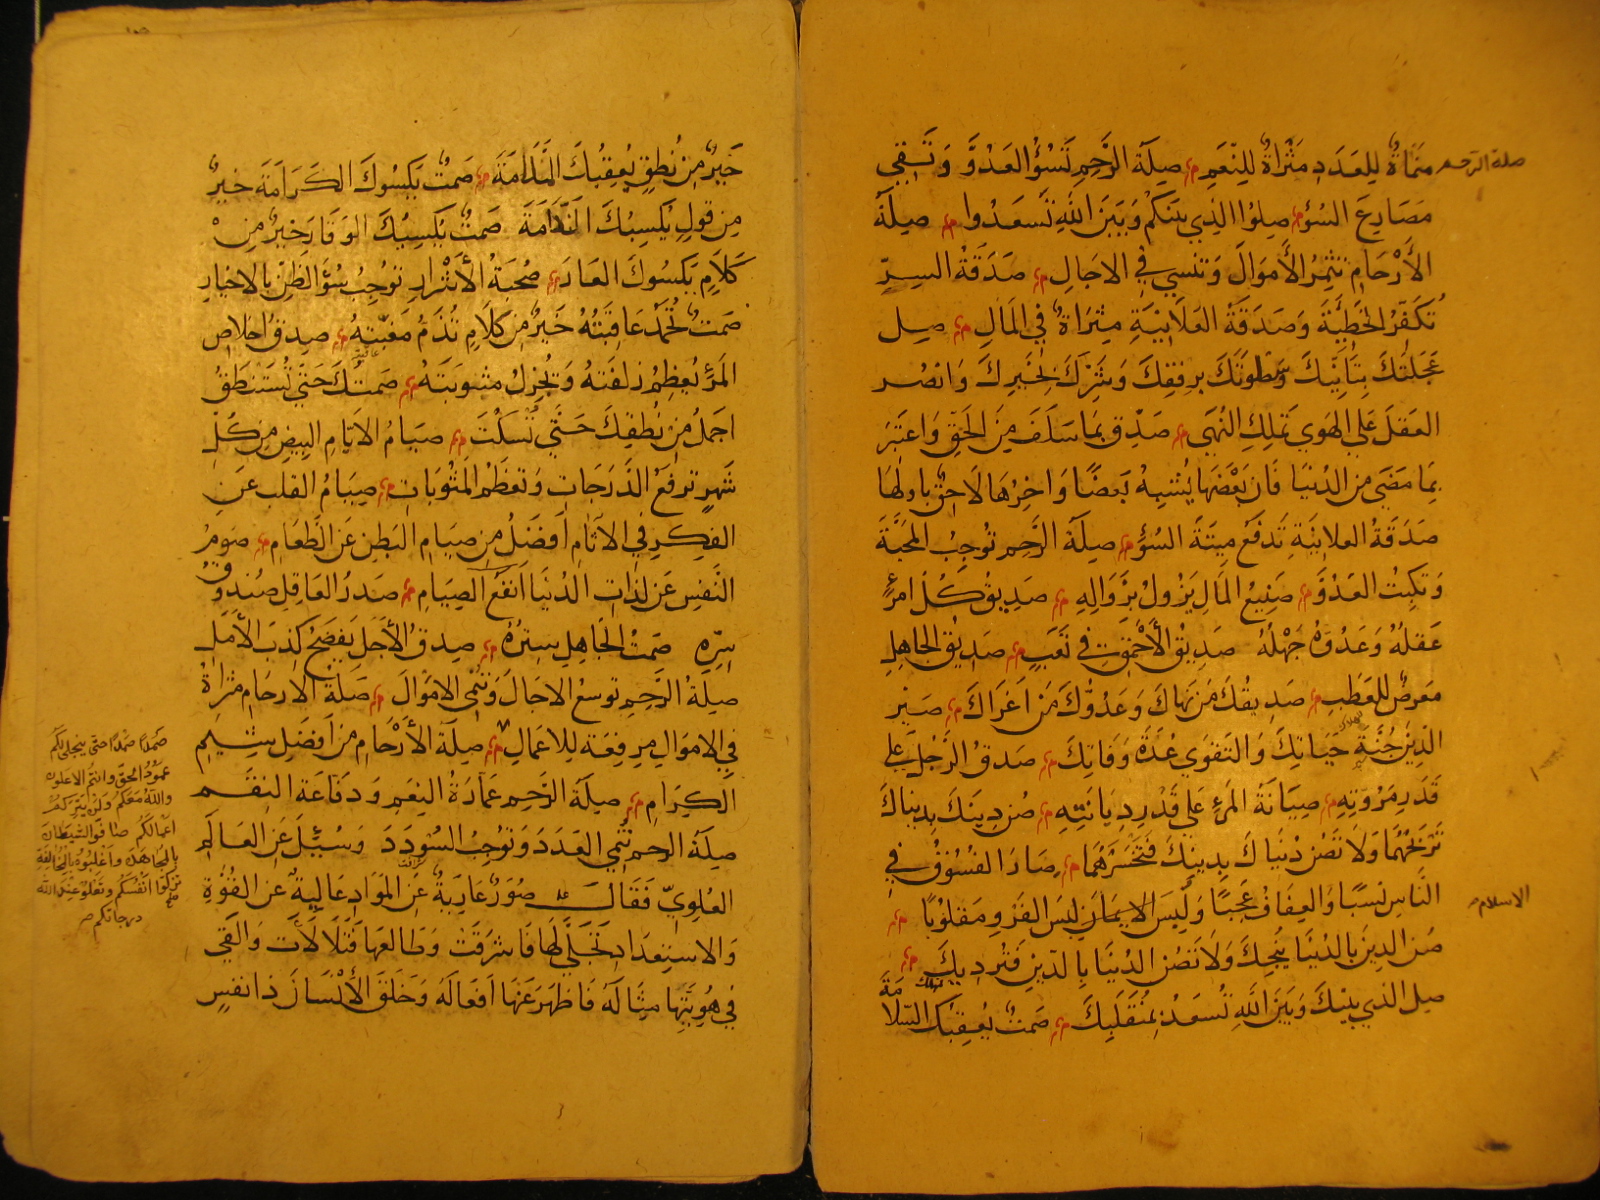 صلة الرحم
مَنْماةٌ لِلعَدَدِ مَثْرَاةٌ لِلنِعَمِ صِلَة الرَّحِمِ تَسُؤُ العَدْوَّ وَتَقِي
مَصَارِعَ السُؤِ صِلوُا الذِي بَيْنَكُم وَبَيَن اللهِ تَسعَدُوا صِلَةُ
الأَرْحَامِ تثمِرُ الأَموَالَ وَتنسي فِي الاجَالِ صَدَقَةُ السِرِّ
تُكَفِّرُ الخَطِيَّةَ وَصَدَقَةُ العَلاَنِيَةِ مِثرَاةٌ فِي المَالِ صِل
عَجَلَتَكَ بِتَأَنِّيكَ وَسَطْوتَكَ بِرِفقِكَ وَشَرَّكَ بِخَيرِكَ وَانصُر
العَقلَ عَلىَ الهَوي تَملِكِ النُهَى صَدِّق بمَا سَلَفَ مِنَ الحَقِّ وَاعتَبِر
بِمَا مَضَى مِنَ الدُنيَا فَاِن بَعْضَهَا يُشبِهُ بَعضًا وَاخِرُهَا لاَحِقٌ باولِهَا
صَدَقَةُ العلانِيَةِ تَدفَعُ مِيتَةَ السُؤِ صِلَةُ الرَّحِمِ تُوجِبُ المَحَبَّةَ
وَتكبِتُ العَدُوَّ صَنِيعُ المَالِ يَزُولُ بِزَوَالِهِ صَدِيقُ كُل امرِئٍ
عَقلُهُ وَعَدُوّهُ جَهْلُهُ صَدِيقُ الأَحْمَقِ فِي تَعَبٍ صَدِيْقُ الجَاهِلِ
مَعرضٌ لِلعَطَبِ صَدِيقُكَ مَن نَهَاكَ وَعَدُوُّكَ مَن اَغرَاكَ صَيِّر
الدِينَ جُنَّةَ حَيَاتِكَ وَالتَقوَى عُدَةَ وَفَاتِكَ صَدقُ الرَّجُلِ عَلى
قَدَرِ مُرُوَتِهِ صِيَانَةُ المَرءِ عَلى قَدْرِ دِيَانَتِهِ صُن دِينَكَ بِدنياكَ
تَرْبَحْهُمَا وَلاَ تَصُن دُنيَاكَ بِدِينِكَ فَتَخْسَرَهُمَا صَارَ الفُسُوقُ فِي
النَّاسِ نَسَبًا وَالعِفَافُ عَجَبًا وَلُبِسَ الاِسلام لُبسَ الفَروِ مَقلُوبًا
الاسلام صح
صُن الدِينَ بِالدُنيَا يُنجِكَ وَلاَ تَصُن الدُنيَا بِالدّينِ فَتُردِيكَ
صِل الذي بينَكَ وَبَيَن اللَّهِ تُسعَدْ بِمُنقَلَبِكَ صَمتٌ يُعقِبُكَ السَّلاَمَة
خَيرٌ مِن نُطقٍ يُعقِبُكَ المَلاَمَةَ صَمتٌ يَكسُوكَ الكَرَامَةَ خيرٌ
مِن قولٍ يُكسِبُكَ النَّدَامَةَ صَمتٌ يُكسِبُكَ الوَقَارَ خَيرٌ مِنْ
كَلاَمٍ يَكسُوكَ العَارَ صُحبَةُ الأَشْرارِ توُجِبُ سُؤَ الظنِّ بِالاخيارِ
صَمتٌ تُحْمَدُ عَاقِبَتُهُ خَيرٌ مِن كَلاَمٍ تُذَمُّ مَغَبّتهُ صِدقُ اخلاَصِ
المَرءِ يُعظِمُ زلفَتهُ وَيُجزِلُ مثوبَتَهُ صَمتُكَ حَتَّى تُستَنطَقُ
اجمَلُ مِن نُطقِكَ حَتَّى تُسكَتَ صِيَامُ الاَيّامِ البِيضِ مِن كُلِّ
شَهرٍ ترفَعُ الدَّرَجَاتِ وَتعَظِمُ المثُوبَاتِ صِيَامُ القلبِ عَنِ
الفِكرِ فِي الاثَامِ اَفضَلُ مِن صِيَامِ البَطنِ عَن الطَّعَامِ صَومُ
النَفسِ عَن لذاتِ الدُنيَا اَنفَعُ الصِيَامِ صَدرُ العَاقِلِ صُندُوقُ
سِرِّهِ صَمتُ الجَاهِلِ سِترُهُ صِدقُ الأَجَلِ يَفضَحُ كذبَ الأَمَلِ
صِلَةُ الرَّحِمِ توسعُ الاجَالَ وَتُنمّي الاموَالَ صِلَةُ الاَرحَامِ مثرَاةٌ
فِي الاموَالِ مرفعَة لِلاعمَالِ صِلَةُ الأَرْحَامِ مِن اَفضَلِ شِيَمِ
الكِرَامِ صِلَةُ الرَّحِمِ عِمَارَةُ النِعَمِ وَدَفَاعَة النِقَم
صِلَةُ الرحمِ تُنمي العَدَدَ وَتوُجِبُ السُودَدَ وَسُئِلَ عَنِ العَالَمِ
العُلوِيّ فَقَالَ صُوَرٌ عَارِيَةٌ عَنِ المَوَادِ عَالِيةٌ عَن القُوَّةِ
وَالاستِعدَادِ تَجَلَّى لَهَا فَاشرَقَت وَطَالعَهَا فَتَلَالَأَت وَالقَى
فِي هُوِيَّتِهَا مِثَالَهُ فَاظهَرَ عَنهَا اَفعَالَهُ وَخَلَقَ الأنسَانَ ذَا نفسٍ
صَمْدًا صَمْدًا حتى ينجلي لكُم
عَمُودُ الحقّ وانتُم الاعلون
واللهُ مَعكم ولن يَتِرَكم
اعمالكم صافوا الشيطان
بالمجاهدة واغلبوه بالمخالفة
تزكوا انفسكم وتعلو عند الله
درجاتكم صح